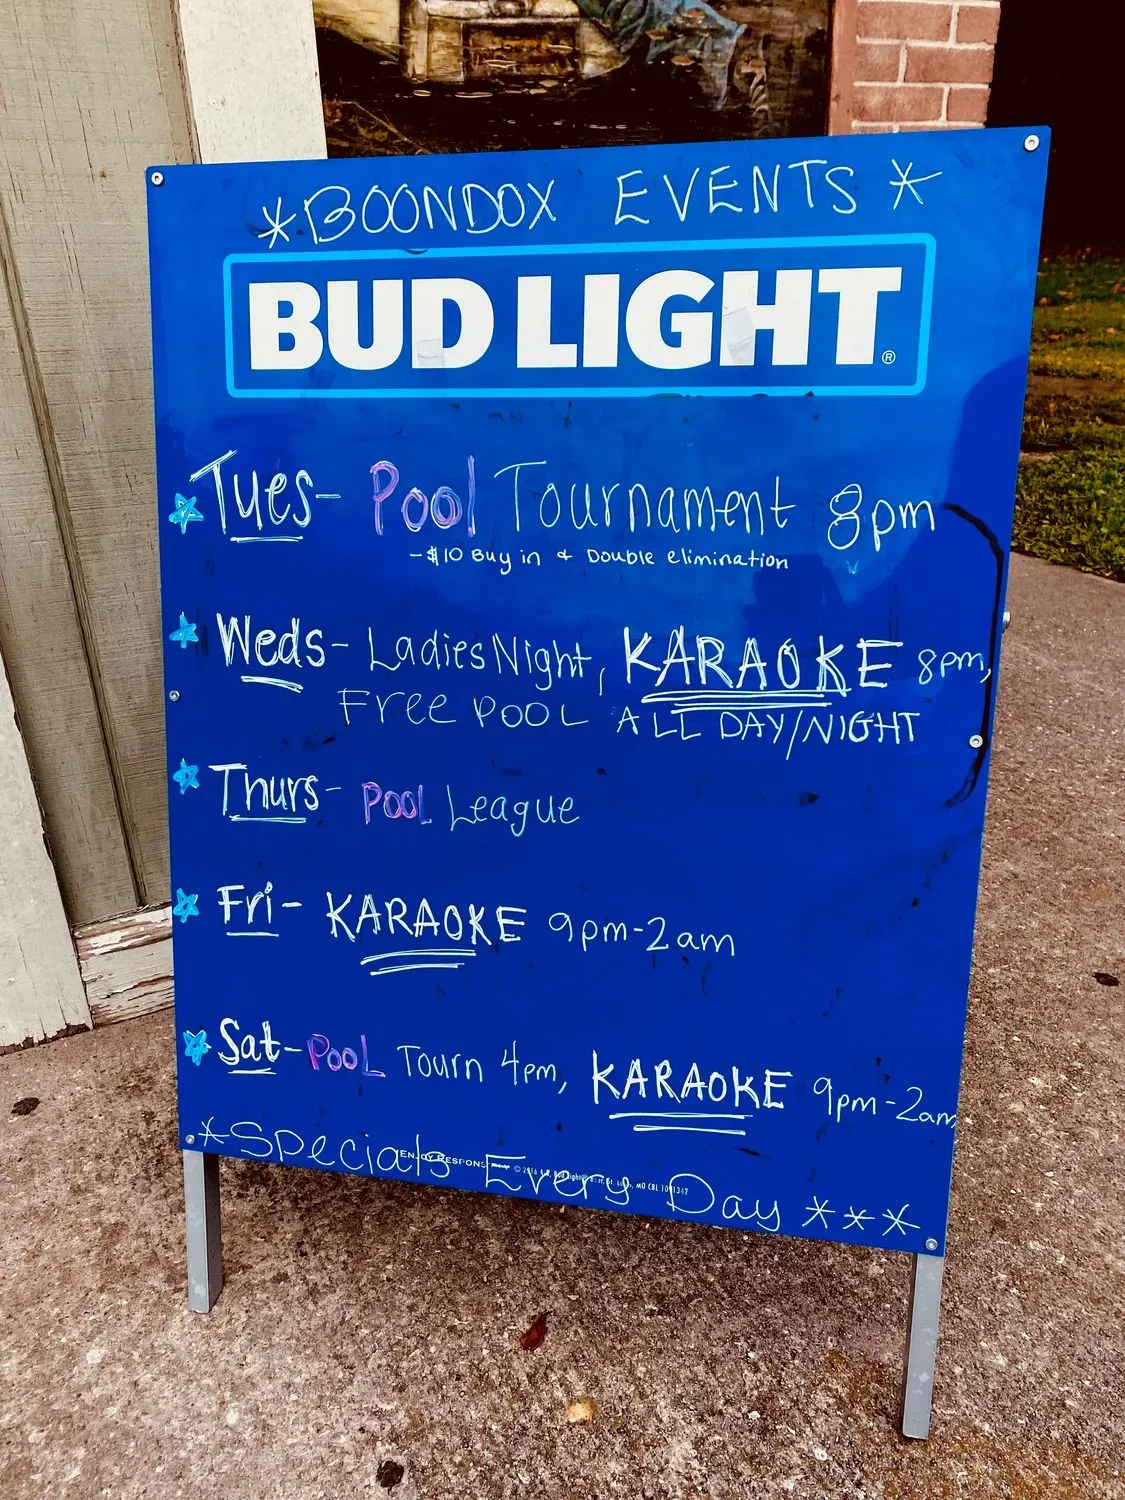 *BOONDOX EVENTS*
BUD LIGHT®
Tues- Pool Tournament 8pm
-$10 Buy in & Double elimination
Weds- Ladies Night, KARAOKE 8pm,
FREE POOL ALL DAY/NIGHT
Thurs- POOL League
Fri- KARAOKE 9pm-2am
Sat- POOL Tourn 4pm, KARAOKE 9pm-2am
*Specials Every Day ***
ENJOY RESPONS